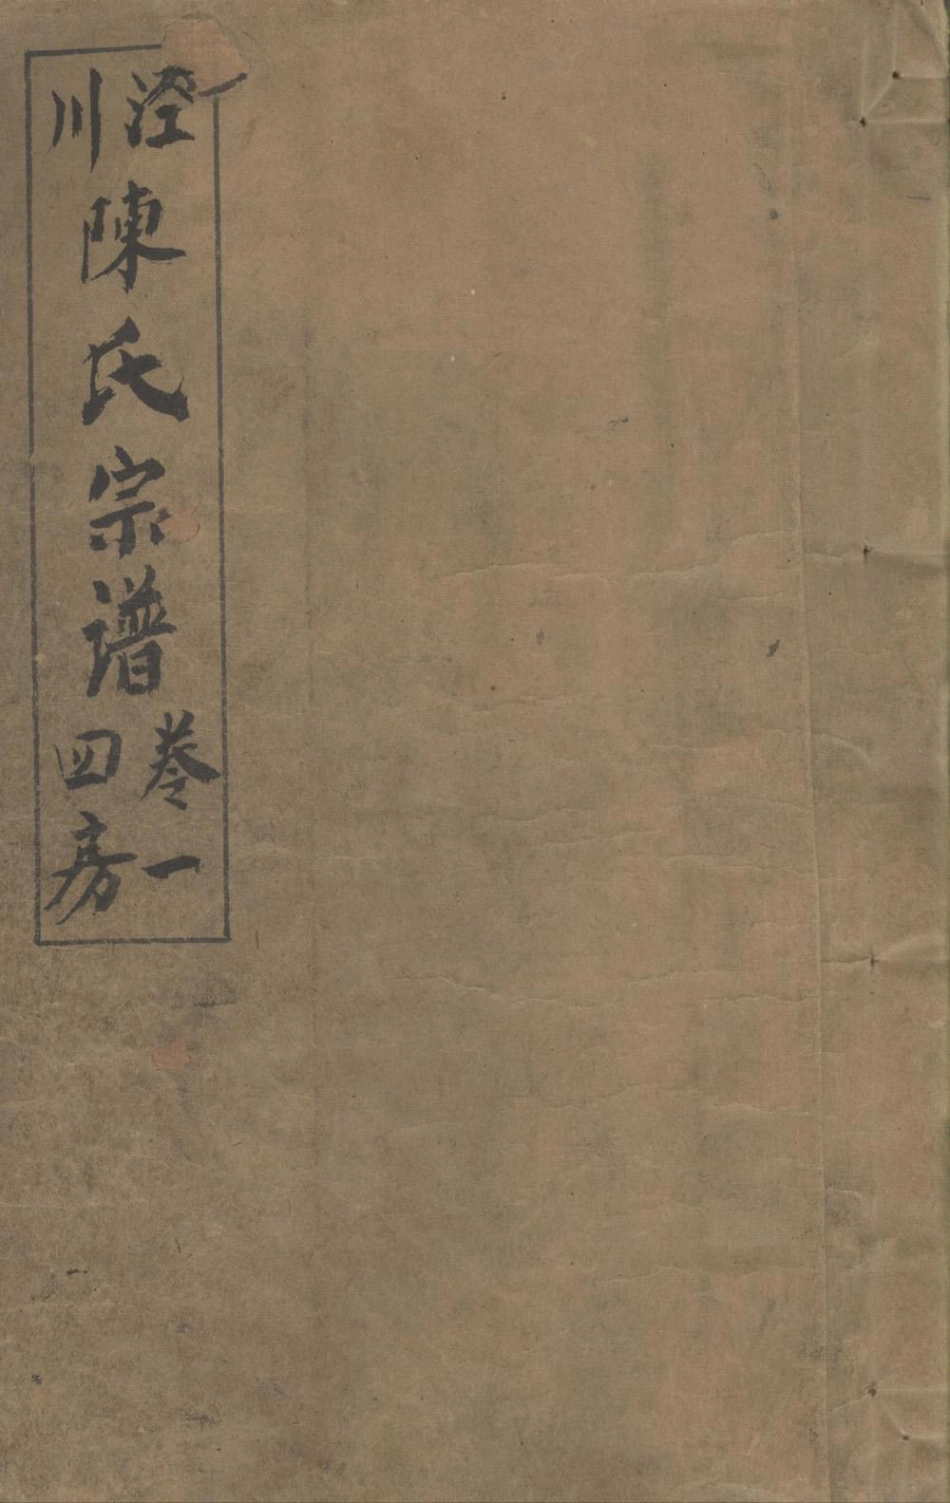 涇川陳氏宗譜
卷一
四房